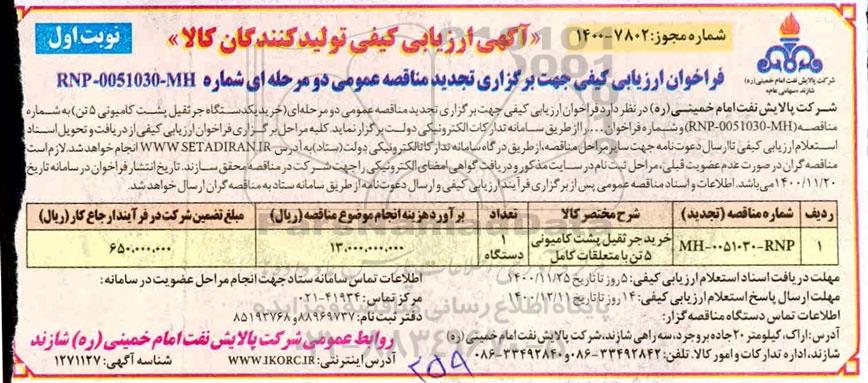 شماره مجوز: ۷۸۰۲-۱۴۰۰
«آگهی ارزیابی کیفی تولیدکنندگان کالا»
نوبت اول
شرکت پالایش نفت امام خمینی (ره)
شازند «سهامی عام»
فراخوان ارزیابی کیفی جهت برگزاری تجدید مناقصه عمومی دو مرحله ای شماره RNP-0051030-MH
شرکت پالایش نفت امام خمینی (ره) در نظر دارد فراخوان ارزیابی کیفی جهت برگزاری تجدید مناقصه عمومی دو مرحله‌ای (خرید یکدستگاه جرثقیل پشت کامیونی ۵ تن) به شماره
مناقصه (RNP-0051030-MH) و شماره فراخوان ... را از طریق سامانه تدارکات الکترونیکی دولت برگزار نماید. کلیه مراحل برگزاری فراخوان ارزیابی کیفی از دریافت و تحویل اسناد
استعلام ارزیابی کیفی تا ارسال دعوت‌نامه جهت سایر مراحل مناقصه، از طریق درگاه سامانه تدارکات الکترونیکی دولت (ستاد) به آدرس WWW.SETADIRAN.IR انجام خواهد شد. لازم است
مناقصه گران در صورت عدم عضویت قبلی، مراحل ثبت نام در سایت مذکور و دریافت گواهی امضای الکترونیکی را جهت شرکت در مناقصه محقق سازند. تاریخ انتشار فراخوان در سامانه تاریخ
۱۴۰۰/۱۱/۲۰ می‌باشد. اطلاعات و اسناد مناقصه عمومی پس از برگزاری فرآیند ارزیابی کیفی و ارسال دعوت‌نامه از طریق سامانه ستاد به مناقصه گران ارسال خواهد شد.
ردیف شماره مناقصه (تجدید) شرح مختصر کالا تعداد برآورد هزینه انجام موضوع مناقصه (ریال) مبلغ تضمین شرکت در فرآیند ارجاع کار (ریال)
۱ MH-۰۰۵۱۰۳۰-RNP خرید جرثقیل پشت کامیونی ۵ تن با متعلقات کامل ۱ دستگاه ۱۳.۰۰۰.۰۰۰.۰۰۰ ۶۵۰.۰۰۰.۰۰۰
مهلت دریافت اسناد استعلام ارزیابی کیفی: ۵ روز تا تاریخ ۱۴۰۰/۱۱/۲۵
مهلت ارسال پاسخ استعلام ارزیابی کیفی: ۱۴ روز تا تاریخ ۱۴۰۰/۱۲/۱۱
اطلاعات تماس دستگاه مناقصه گزار:
آدرس: اراک، کیلومتر ۲۰ جاده بروجرد، سه راهی شازند، شرکت پالایش نفت امام خمینی (ره)
شازند، اداره تدارکات و امور کالا. تلفن: ۳۳۴۹۲۸۴۲-۰۸۶ و ۳۳۴۹۲۸۴۰-۰۸۶
اطلاعات تماس سامانه ستاد جهت انجام مراحل عضویت در سامانه:
مرکز تماس: ۴۱۹۳۴-۰۲۱
دفتر ثبت نام: ۸۸۹۶۹۷۳۷ و ۸۵۱۹۳۷۶۸
روابط عمومی شرکت پالایش نفت امام خمینی (ره) شازند
آدرس اینترنتی: WWW.IKORC.IR شناسه آگهی: ۱۲۷۱۱۲۷
۲۵۹